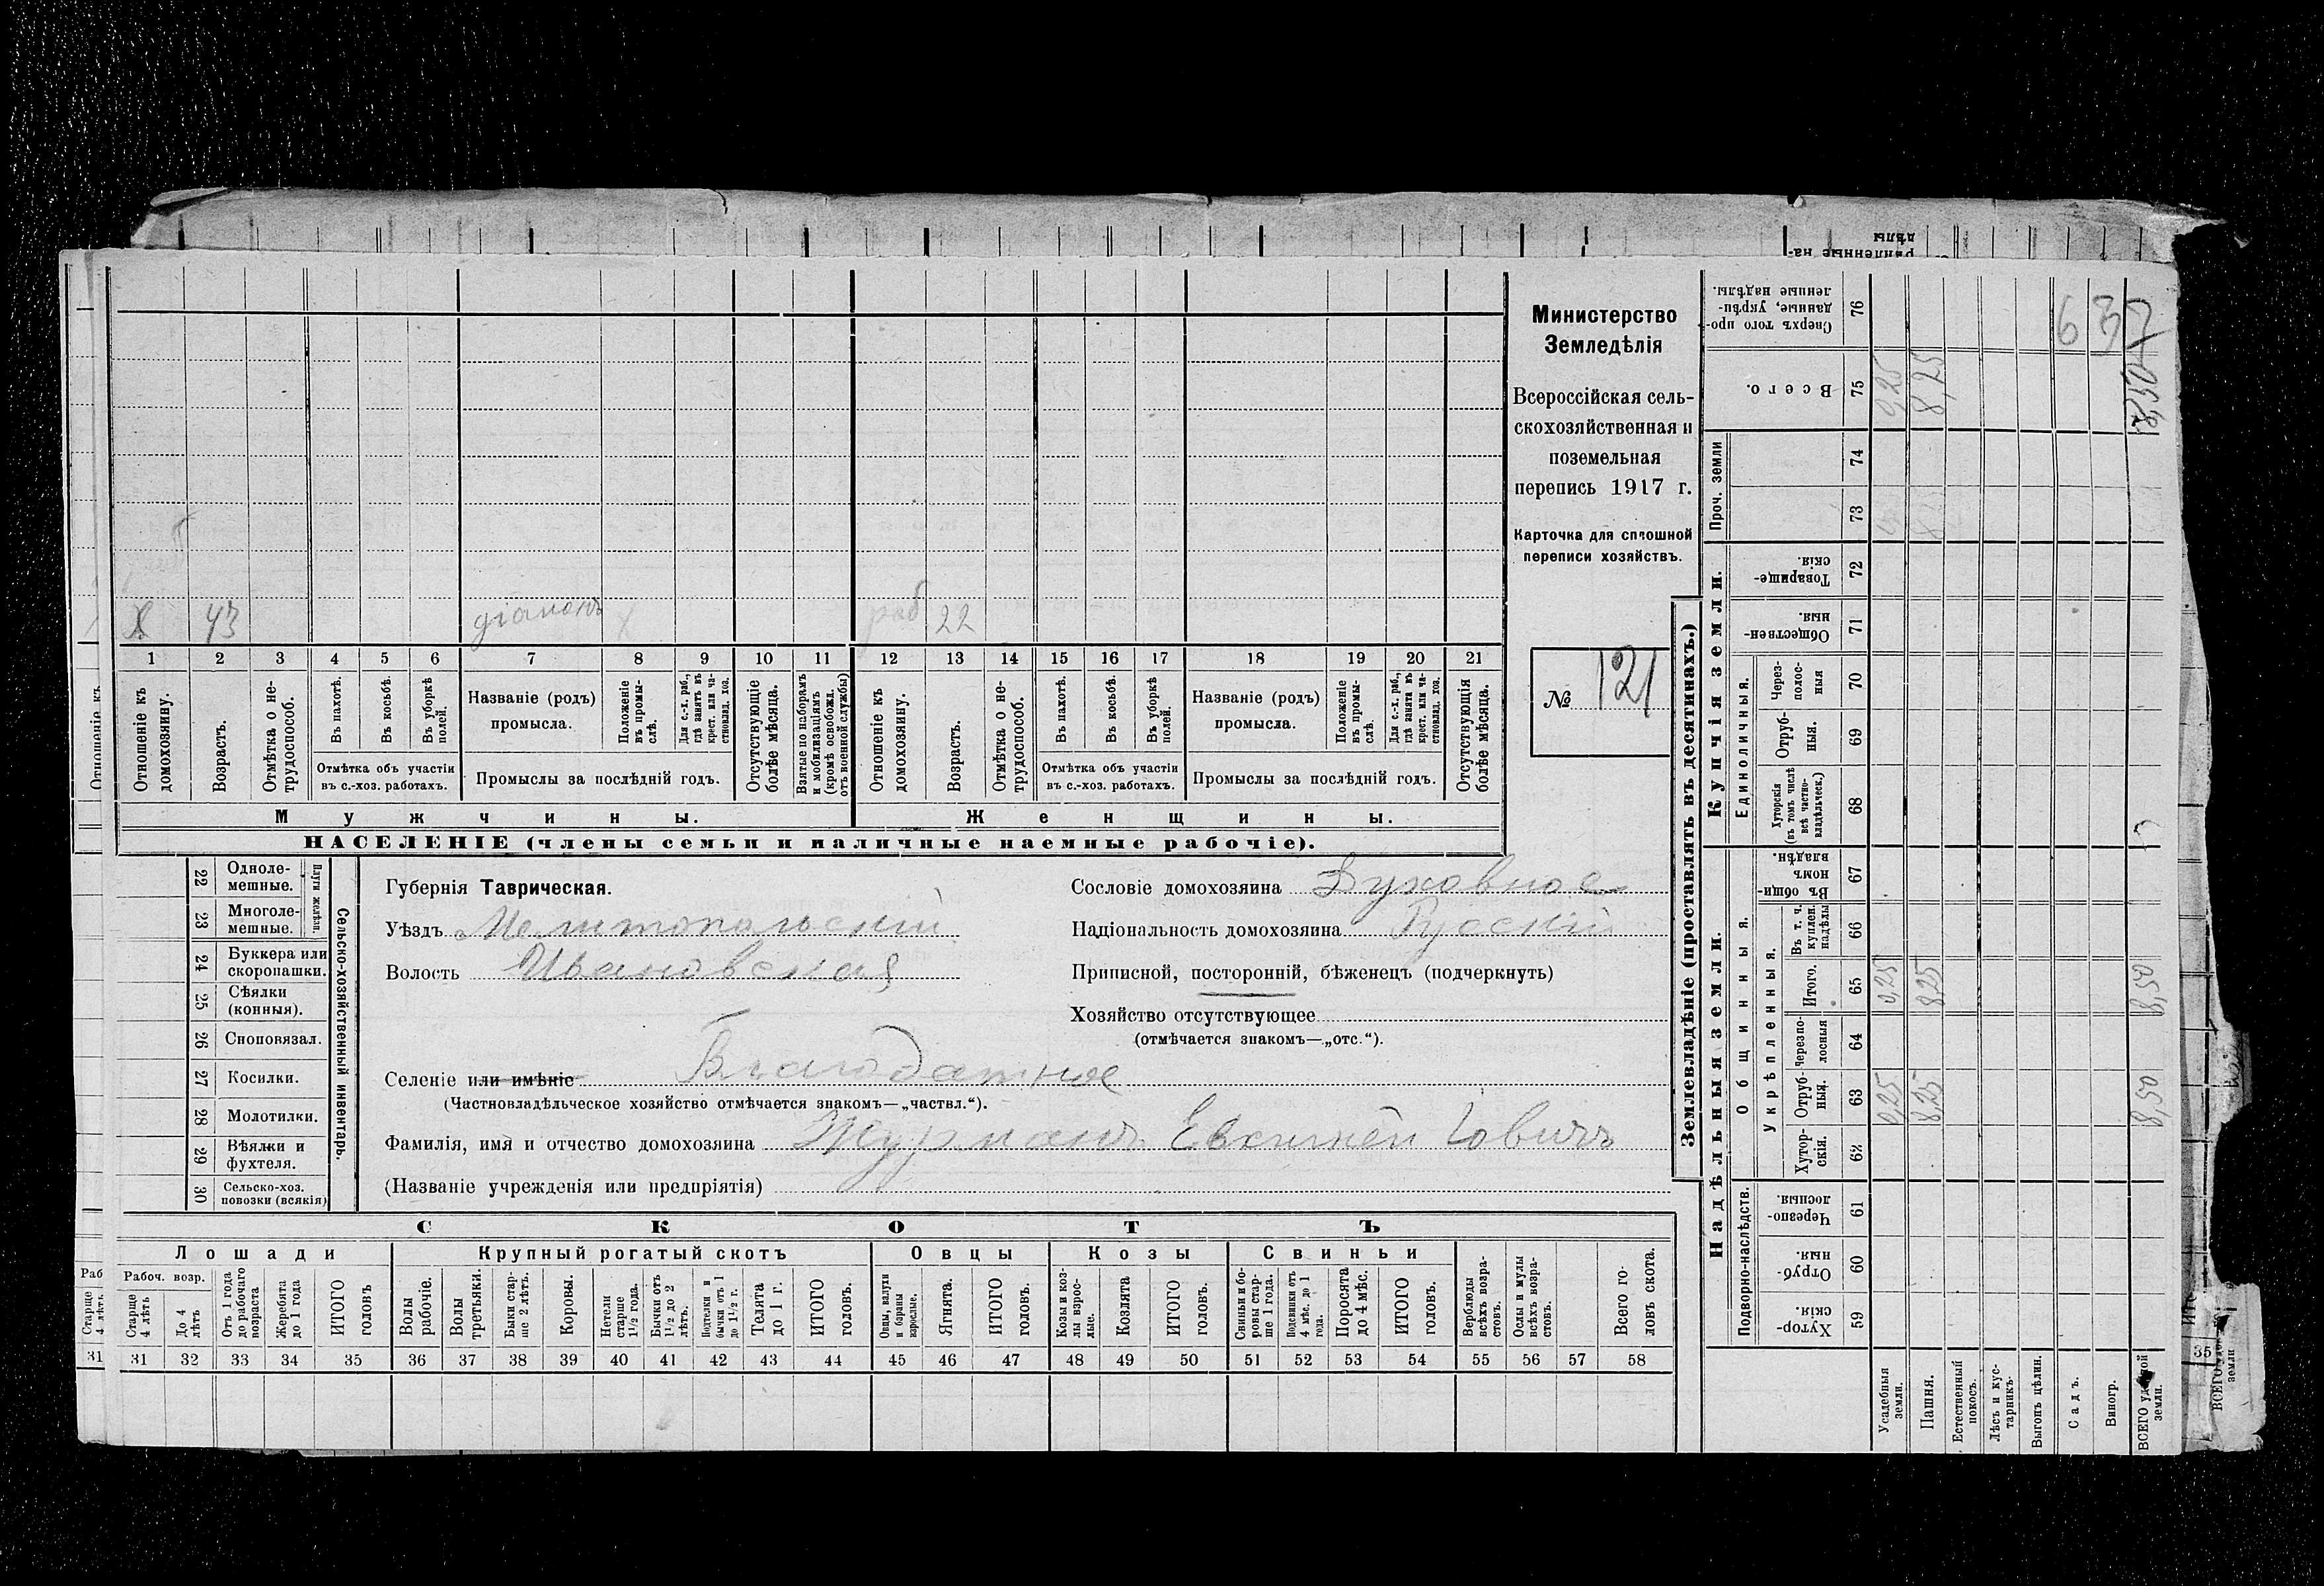 Министерство
Земледѣлія
Всероссійская сель-
скохозяйственная и
поземельная
перепись 1917 г.
Карточка для сплошной
переписи хозяйствъ.
№ 121
X 43 діаконъ X раб. 22
1 2 3 4 5 6 7 8 9 10 11 12 13 14 15 16 17 18 19 20 21
Отношеніе къ домохозяину.
Возрастъ.
Отмѣтка о не-трудоспособ.
Въ пахотѣ.
Въ косьбѣ.
Въ уборкѣ полей.
Отмѣтка объ участіи
въ с.-хоз. работахъ.
Названіе (родъ)
промысла.
Положеніе въ промы-слѣ.
Для с.-х. раб., гдѣ занятъ въ крест. или ча-стновлад. хоз.
Промыслы за послѣдній годъ.
Отсутствующіе болѣе мѣсяца.
Взятые по наборамъ и мобилизаціямъ (кромѣ освобожд. отъ военной службы)
Отношеніе къ домохозяину.
Возрастъ.
Отмѣтка о не-трудоспособ.
Въ пахотѣ.
Въ косьбѣ.
Въ уборкѣ полей.
Отмѣтка объ участіи
въ с.-хоз. работахъ.
Названіе (родъ)
промысла.
Положеніе въ промы-слѣ.
Для с.-х. раб., гдѣ занята въ крест. или ча-стновлад. хоз.
Промыслы за послѣдній годъ.
Отсутствующія болѣе мѣсяца.
Мужчины. Женщины.
НАСЕЛЕНІЕ (члены семьи и наличные наемные рабочіе).
Сельско-хозяйственный инвентарь.
Плуги желѣзн.
22 Одноле-мешные.
23 Многоле-мешные.
24 Буккера или скоропашки.
25 Сѣялки (конныя).
26 Сноповязал.
27 Косилки.
28 Молотилки.
29 Вѣялки и фухтеля.
30 Сельско-хоз. повозки (всякія)
Губернія Таврическая.
Уѣздъ Мелитопольскій
Волость Ивановская
Сословіе домохозяина Духовное
Національность домохозяина Русскій
Приписной, посторонній, бѣженецъ (подчеркнуть)
Хозяйство отсутствующее
(отмѣчается знакомъ—„отс.“).
Селеніе или имѣніе Благодатное
(Частновладѣльческое хозяйство отмѣчается знакомъ—„частвл.“).
Фамилія, имя и отчество домохозяина Іовичъ
(Названіе учрежденія или предпріятія)
СКОТЪ
Лошади Крупный рогатый скотъ Овцы Козы Свиньи
Рабоч. возр.
Старше 4 лѣтъ
До 4 лѣтъ
Отъ 1 года до рабочаго возраста
Жеребята до 1 года
ИТОГО головъ
Волы рабочіе.
Волы третьяки.
Быки стар-ше 2 лѣтъ.
Коровы.
Нетели старше 1½ года.
Бычки отъ 1½ до 2 лѣтъ.
Подтелки и бычки отъ 1 до 1½ г.
Телята до 1 г.
ИТОГО головъ.
Овцы, валухи и бараны взрослые.
Ягнята.
ИТОГО головъ.
Козы и коз-лы взрос-лые.
Козлята
ИТОГО головъ.
Свиньи и бо-ровы стар-ше 1 года.
Подсвинки отъ 4 мѣс. до 1 года.
Поросята до 4 мѣс.
ИТОГО головъ.
Верблюды всѣхъ возра-стовъ.
Ослы и мулы всѣхъ возра-стовъ.
Всего го-ловъ скота.
31 32 33 34 35 36 37 38 39 40 41 42 43 44 45 46 47 48 49 50 51 52 53 54 55 56 57 58
Землевладѣніе (проставлять въ десятинахъ.)
Надѣльныя земли.
Купчія земли.
Проч. земли
Подворно-наслѣдств.
Общинныя.
Укрѣпленныя.
Единоличныя.
Хутор-скія. 59
Отруб-ныя. 60
Черезпо-лосныя. 61
Хутор-скія. 62
Отруб-ныя. 63 0,25 8,25 8,50
Черезпо-лосныя 64
Итого. 65 0,25 8,25 8,50
Въ т. ч. куплен. надѣлы 66
Въ общин-номъ владѣн. 67
Хуторскія (въ томъ числѣ всѣ частно-владѣльческ.) 68
Отруб-ныя. 69
Через-полос-ныя 70
Обществен-ныя. 71
Товарище-скія. 72
73
74
Всего. 75 0,25 8,25 8,50
Сверхъ того про-данные, укрѣп-ленные надѣлы. 76
637
Усадебныя земли.
Пашня.
Естественный покосъ.
Лѣсъ и кус-тарникъ.
Выгонъ цѣлин.
Садъ.
Виногр.
ВСЕГО удобной земли.